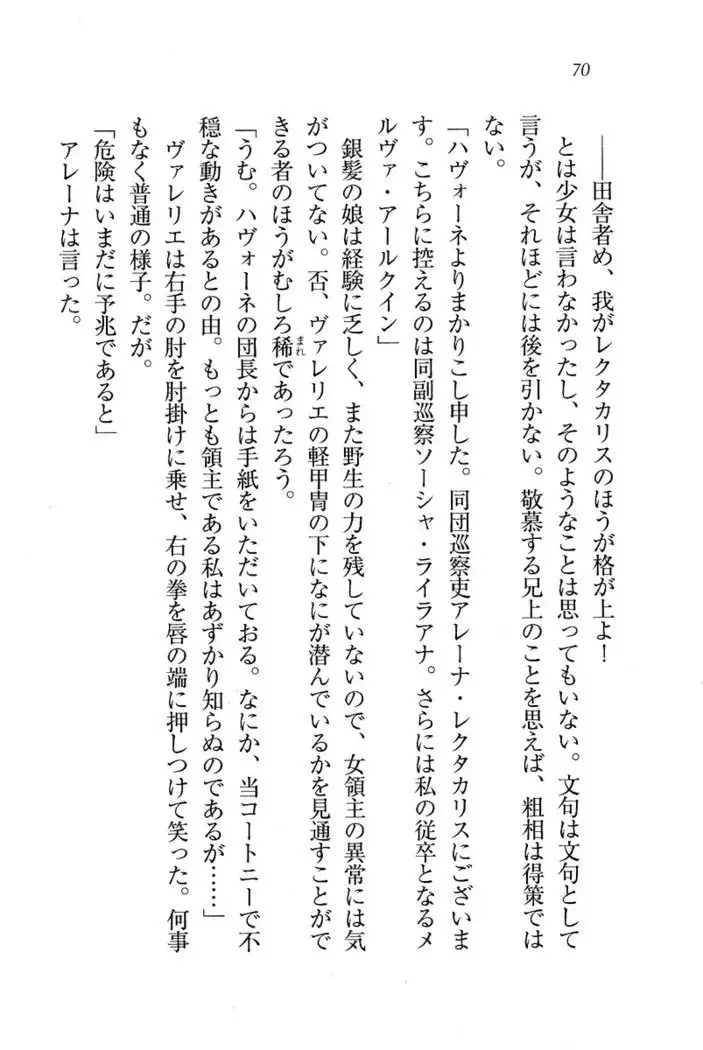 70
――田舎者め、我がレクタカリスのほうが格が上よ！
とは少女は言わなかったし、そのようなことは思ってもいない。文句は文句として
言うが、それほどには後を引かない。敬慕する兄上のことを思えば、粗相は得策では
ない。
「ハヴォーネよりまかりこし申した。同団巡察吏アレーナ・レクタカリスにございま
す。こちらに控えるのは同副巡察ソーシャ・ライラアナ。さらには私の従卒となるメ
ルヴァ・アールクイン」
銀髪の娘は経験に乏しく、また野生の力を残していないので、女領主の異常には気
がついてない。否、ヴァレリエの軽甲冑の下になにが潜んでいるかを見通すことがで
きる者のほうがむしろ稀であったろう。
まれ
「うむ。ハヴォーネの団長からは手紙をいただいておる。なにか、当コートニーで不
穏な動きがあるとの由。もっとも領主である私はあずかり知らぬのであるが……」
ヴァレリエは右手の肘を肘掛けに乗せ、右の拳を唇の端に押しつけて笑った。何事
もなく普通の様子。だが。
「危険はいまだに予兆であると」
アレーナは言った。